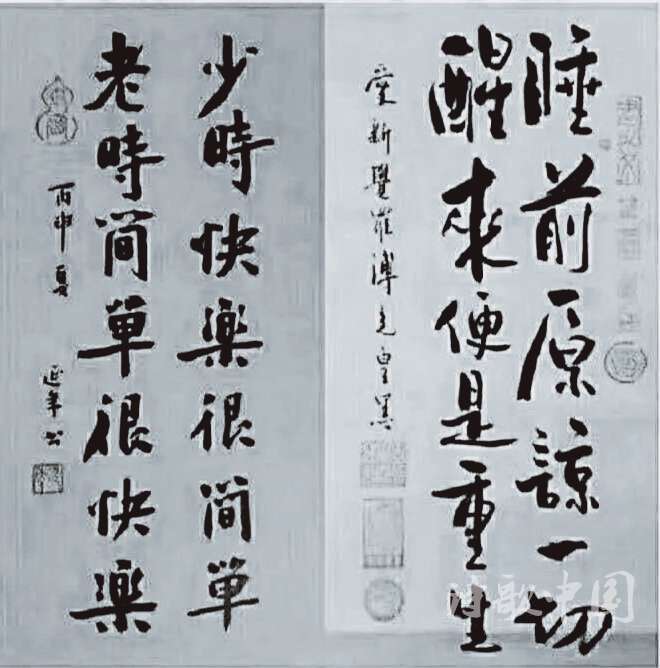 睡前原諒一切
醒來便是重生
愛新覺羅溥
少時快樂很简單
老時简單很快樂
丙申夏
延年
诗歌中国